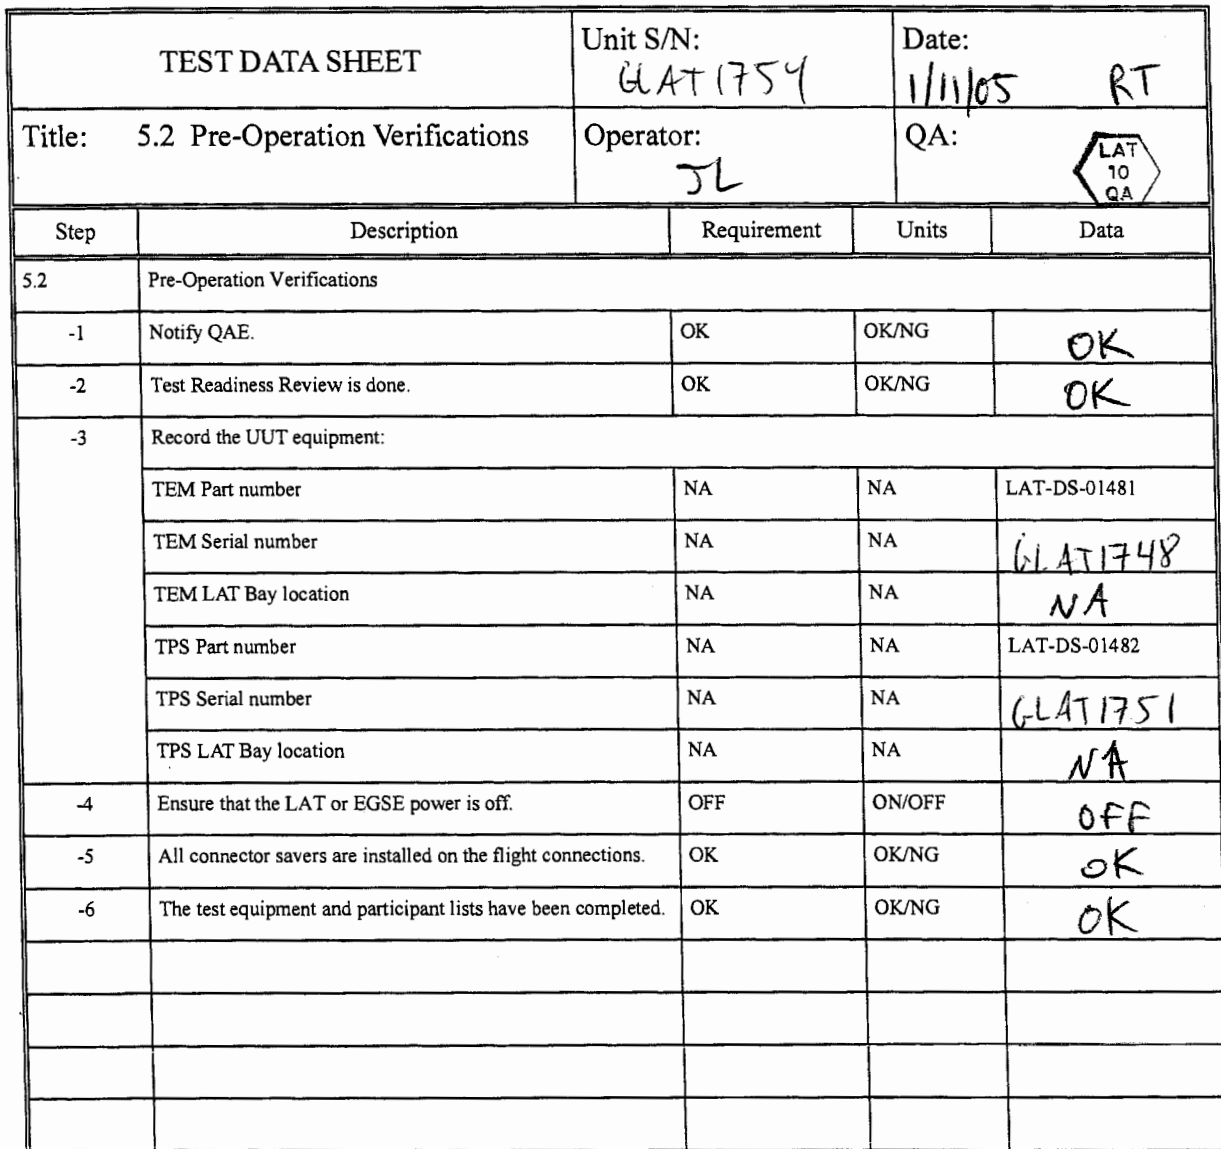 TEST DATA SHEET
Unit S/N:
GLAT1754
Date:
1/11/05 RT
Title: 5.2 Pre-Operation Verifications
Operator:
JL
QA:
LAT
10
QA
Step Description Requirement Units Data
5.2 Pre-Operation Verifications
-1 Notify QAE. OK OK/NG OK
-2 Test Readiness Review is done. OK OK/NG OK
-3 Record the UUT equipment:
TEM Part number NA NA LAT-DS-01481
TEM Serial number NA NA GLAT1748
TEM LAT Bay location NA NA NA
TPS Part number NA NA LAT-DS-01482
TPS Serial number NA NA GLAT1751
TPS LAT Bay location NA NA NA
-4 Ensure that the LAT or EGSE power is off. OFF ON/OFF OFF
-5 All connector savers are installed on the flight connections. OK OK/NG OK
-6 The test equipment and participant lists have been completed. OK OK/NG OK